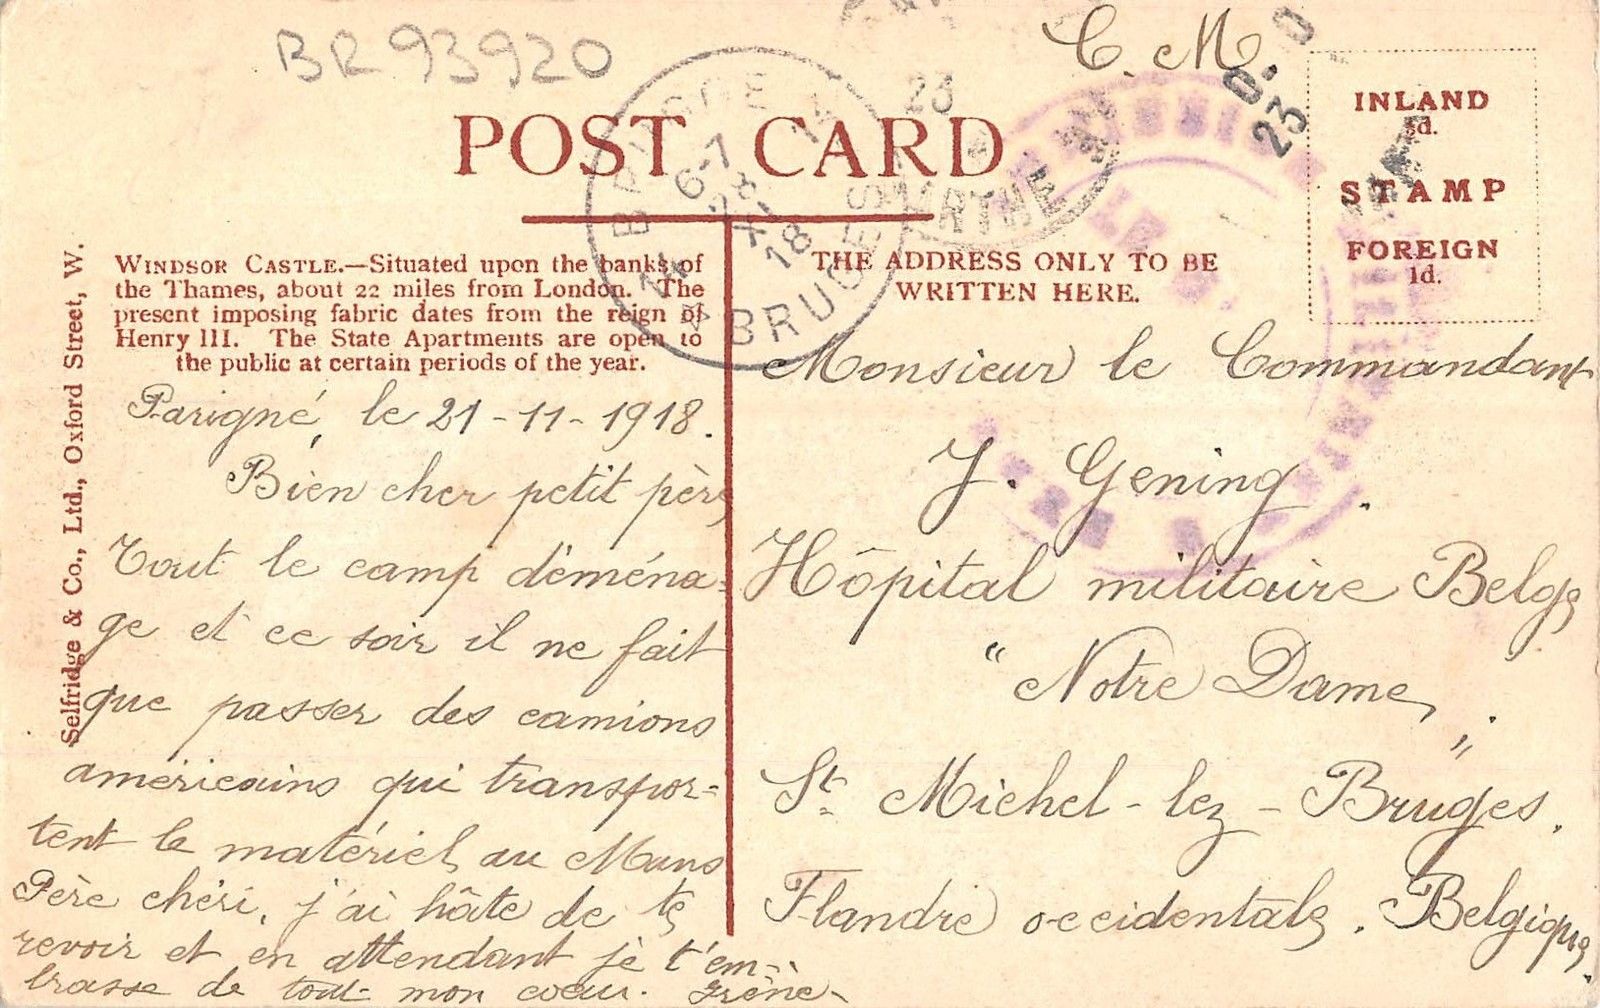 BR 93920
C. M.
POST CARD
INLAND
½d.
STAMP
FOREIGN
1d.
23
SARTHE
6-7
28
XI
18
BRUGGE
BRUGES
Selfridge & Co., Ltd., Oxford Street, W.
WINDSOR CASTLE.—Situated upon the banks of
the Thames, about 22 miles from London. The
present imposing fabric dates from the reign of
Henry III. The State Apartments are open to
the public at certain periods of the year.
Parigné, le 21-11-1918.
Bien cher petit père,
Tout le camp déména-
ge et ce soir il ne fait
que passer des camions
américains qui transpor-
tent le matériel au Mans
Père chéri, j'ai hâte de te
revoir et en attendant je t'em-
brasse de tout mon cœur. Irène
THE ADDRESS ONLY TO BE
WRITTEN HERE.
Monsieur le Commandant
J. Gening.
Hôpital militaire Belge
"Notre Dame".
St. Michel-lez-Bruges.
Flandre occidentale. Belgique.